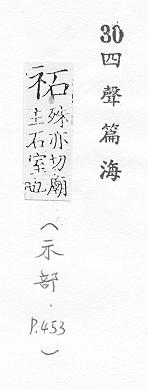 30四聲篇海
祏
殊亦切廟
主石室也
（示部．P.453）